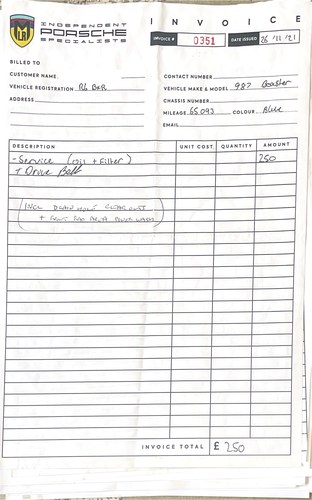 INVOICE
INDEPENDENT
PORSCHE
SPECIALISTS
INVOICE # 0351 DATE ISSUED 26 '11 '21
BILLED TO
CUSTOMER NAME
VEHICLE REGISTRATION R6 BXR
ADDRESS
CONTACT NUMBER
VEHICLE MAKE & MODEL 987 Boxster
CHASSIS NUMBER
MILEAGE 65093 COLOUR Blue
EMAIL
DESCRIPTION UNIT COST QUANTITY AMOUNT
- Service (oil + Filter) 250
+ Drive Belt
(INCL DRAIN HOLE CLEAR OUT
+ FRONT RAD AREA POWER WASH)
INVOICE TOTAL £ 250